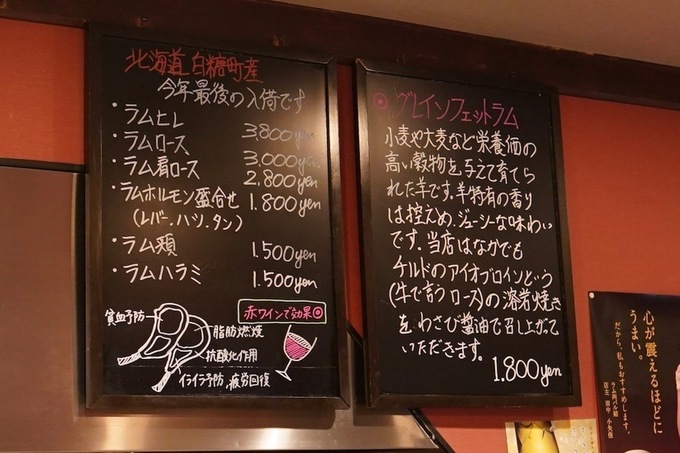 北海道 白糠町産
今年最後の入荷です
・ラムヒレ 3,800yen
・ラムロース 3,000yen
・ラム肩ロース 2,800yen
・ラムホルモン盛合せ 1,800yen
(レバー.ハツ.タン)
・ラム頬 1,500yen
・ラムハラミ 1,500yen
赤ワインで効果◎
貧血予防
脂肪燃焼
抗酸化作用
イライラ予防,疲労回復
◎グレインフェットラム
小麦や大麦など栄養価の
高い穀物を与えて育てら
れた羊です。羊特有の香り
は控えめ、ジューシーな味わい
です。当店はなかでも
チルドのアイオブロインという
(牛で言うロース)の溶岩焼き
を、わさび醤油で召し上がって
いただきます。
1.800yen
心が震えるほどに
うまい。
だから、私もおすすめします。